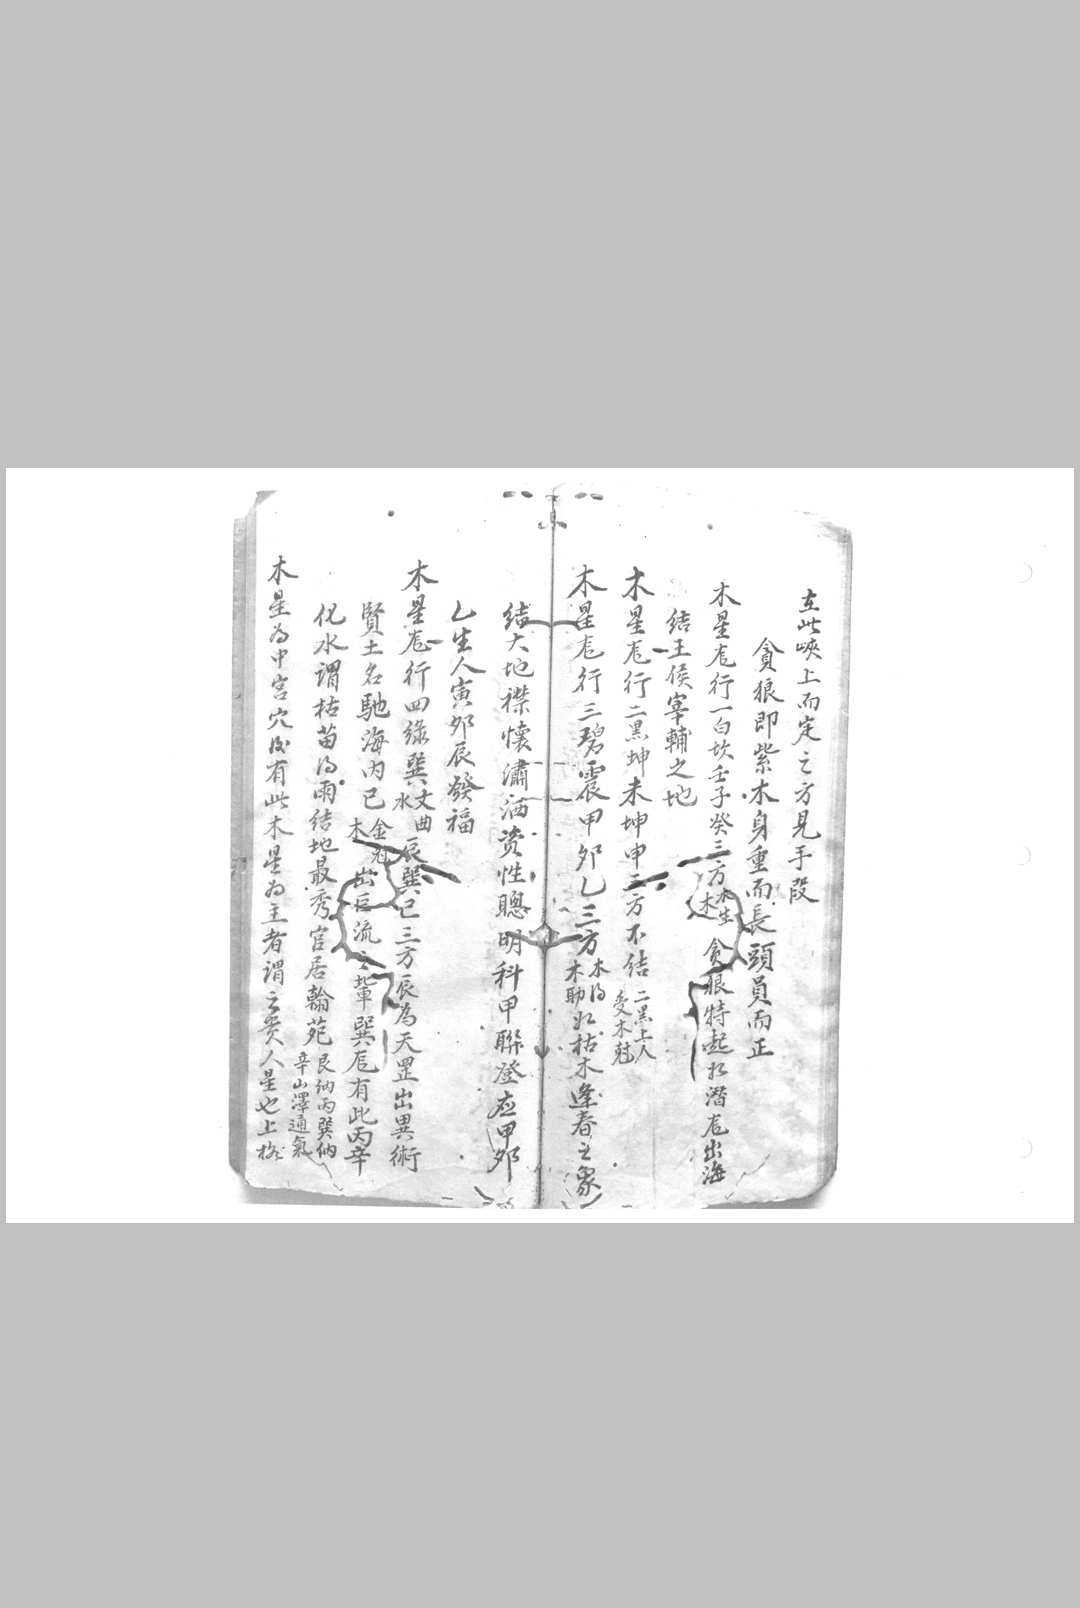 在此峽上而定之方見手段
貪狼即紫木身重而長頭員而正
木星尨行一白坎壬子癸三方水生木貪狼特起如潛尨出海
結王侯宰輔之地
木星尨行二黑坤未坤申三方不結二黑土人受木尅
木星尨行三碧震甲夘乙三方木得木助如枯木逢春之象
結大地襟懷瀟洒资性聰明科甲聯登应甲夘
乙生人寅夘辰發福
木星尨行四綠巽文曲水辰巽巳三方辰為天罡出異術
賢士名馳海内巳金尅木出巨流之軰巽尨有此丙辛
化水謂枯苗得雨結地最秀官居翰苑艮納丙巽納辛山澤通氣
木星為中宮穴後有此木星為主者謂之贵人星也上格